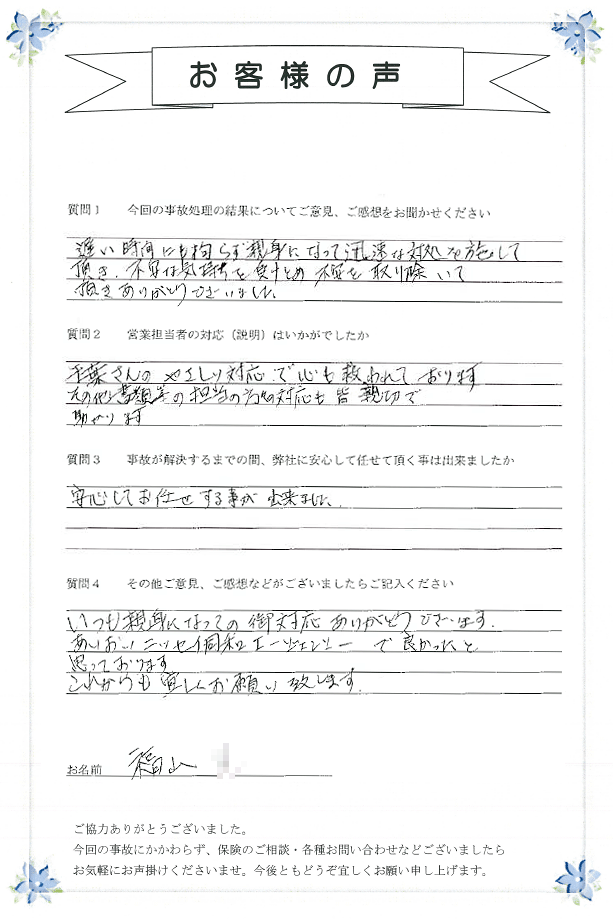 お客様の声
質問1 今回の事故処理の結果についてご意見、ご感想をお聞かせください
遅い時間にも拘らず親身になって迅速な対処を施して
頂き、不安な気持ちを受けとめ 不安を取り除いて
頂きありがとうございました。
質問2 営業担当者の対応（説明）はいかがでしたか
千葉さんのやさしい対応で心も救われております
その他書類等の担当の方の対応も皆親切で
助かります
質問3 事故が解決するまでの間、弊社に安心して任せて頂く事は出来ましたか
安心してお任せする事が出来ました。
質問4 その他ご意見、ご感想などがございましたらご記入ください
いつも親身になっての御対応ありがとうございます。
あいおいニッセイ同和エージェンシーで良かったと
思っております
これからも宜しくお願い致します。
お名前 福山
ご協力ありがとうございました。
今回の事故にかかわらず、保険のご相談・各種お問い合わせなどございましたら
お気軽にお声掛けくださいませ。今後ともどうぞ宜しくお願い申し上げます。